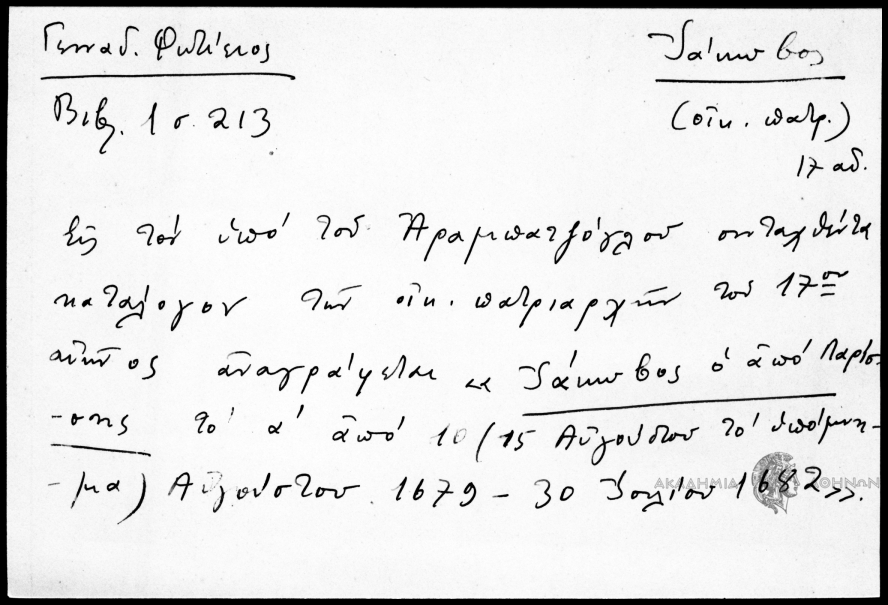 Γενναδ. Φωτίειος
Βιβλ. 1 σ. 213
Ἰάκωβος
(οἰκ. πατρ.)
17 αἰ.
Εἰς τόν ὑπό τοῦ Ἀραμπατζόγλου συνταχθέντα
κατάλογον τῶν οἰκ. πατριαρχῶν τοῦ 17ου
αἰῶνος ἀναγράφεται «Ἰάκωβος ὁ ἀπό Λαρίσ-
-σης τό α' ἀπό 10 (15 Αὐγούστου τό ὑπόμνη-
-μα) Αὐγούστου 1679 - 30 Ἰουλίου 1682».
ΑΚΑΔΗΜΙΑ ΑΘΗΝΩΝ